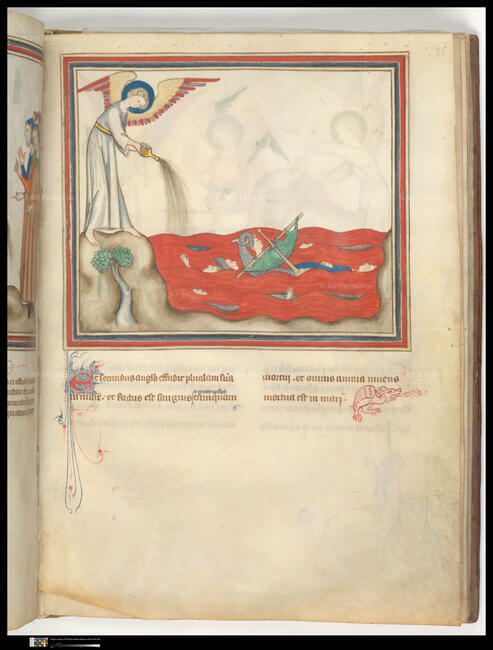 Et secundus angls effudit phialam suā
in mare . et factus est sanguis tamquam
mortui . et omnis anima uiuens
mortua est in mari .
© Art Resource